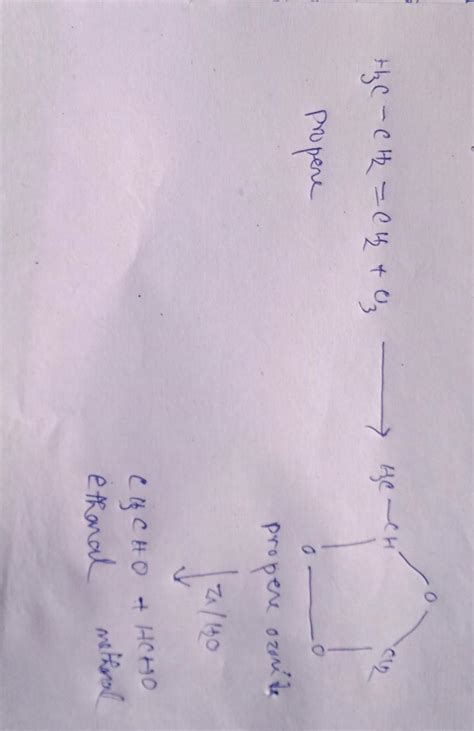 H3C - CH2 = CH2 + O3 → H3C - CH
O
CH2
O
O
propene
propene ozonide
Zn/H2O
CH3CHO + HCHO
Ethanal methanal